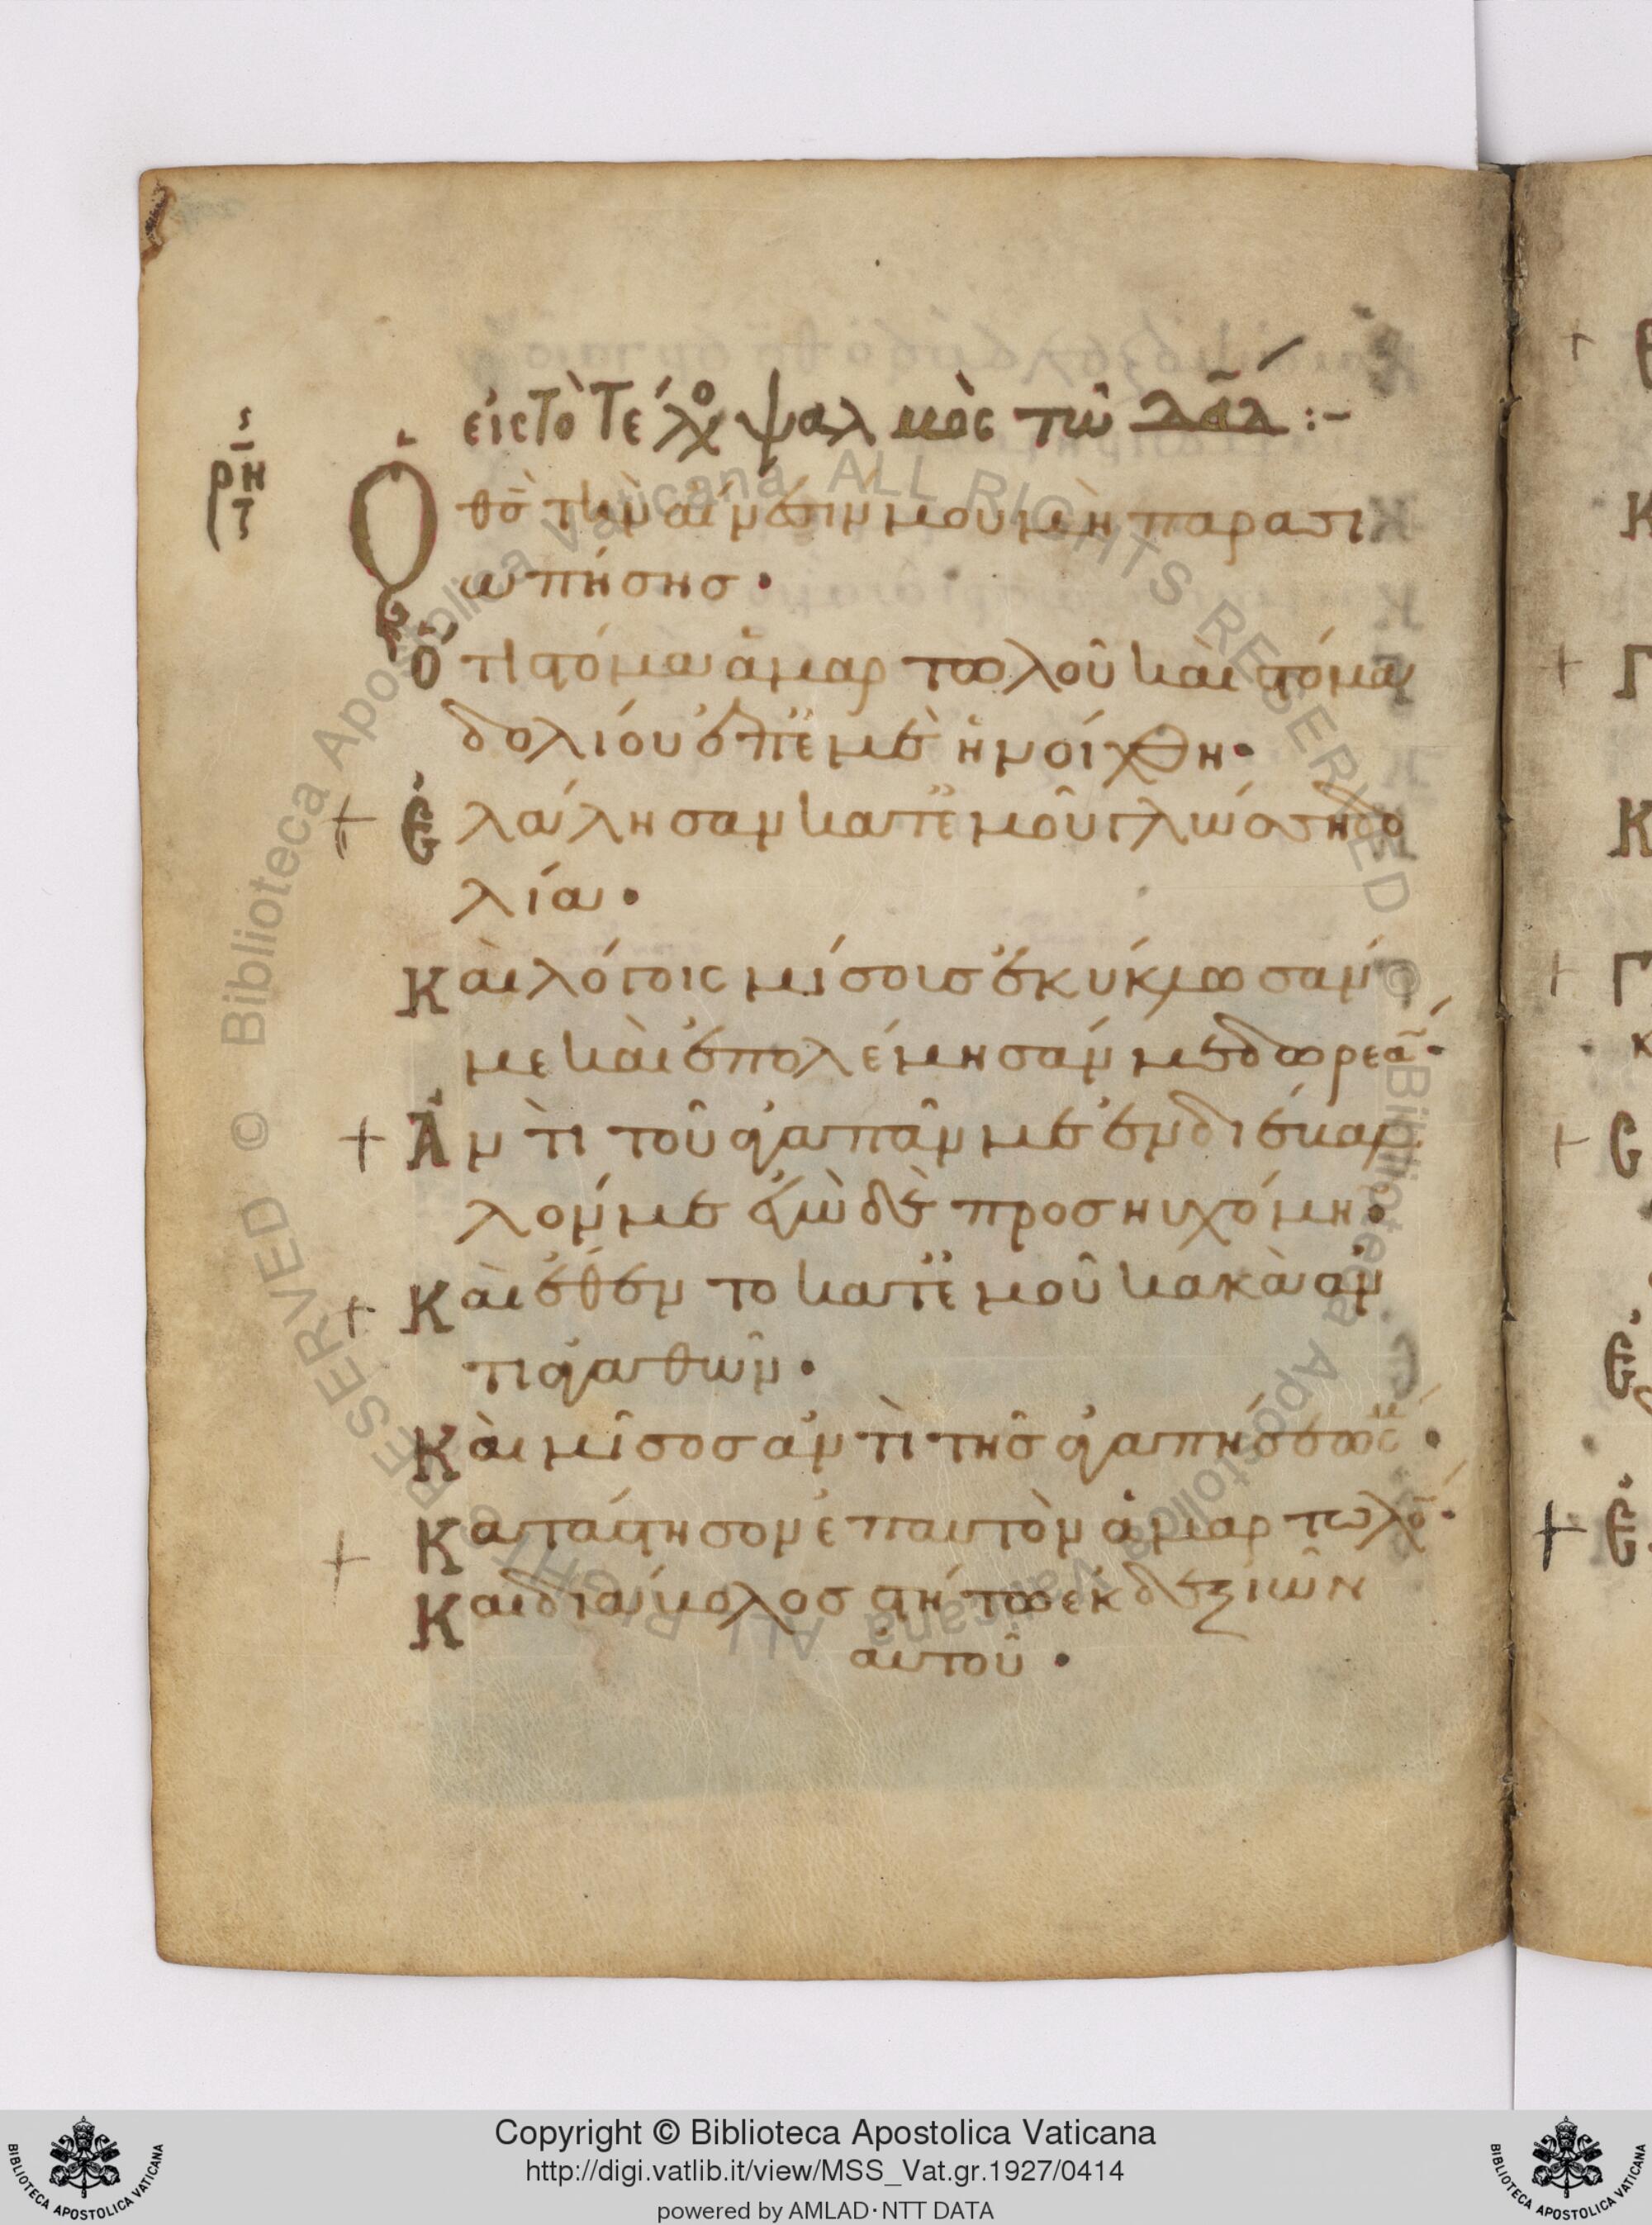 εἰς τὸ τέλο ψαλμὸς τῶ δαδ :-
ρη
Ὁ θς τὴν αἴνεσίν μου μὴ παρασι
ωπήσησ·
Ὅτι στόμα ἁμαρτωλοῦ καὶ στόμα
δολίου ἐπ ἐμὲ ἠνοίχθη·
+ Ἐλάλησαν κατ ἐμοῦ γλώσση δο
λία·
Καὶ λόγοις μίσοισ ἐκύκλωσάν
με καὶ ἐπολέμησάν με δωρεά·
+ Ἀντὶ τοῦ ἀγαπᾶν με ἐνδιέβαλ
λόν με ἐγὼ δὲ προσηυχόμην
+ Καὶ ἔθεντο κατ ἐμοῦ κακὰ ἀν
τι ἀγαθῶν·
Καὶ μῖσοσ ἀντὶ τῆσ ἀγαπήσεώς·
+ Κατάστησον ἐπ αυτὸν ἁμαρτωλό·
Και διάβολοσ στήτω εκ δεξιῶν
αὐτοῦ·
Copyright © Biblioteca Apostolica Vaticana
http://digi.vatlib.it/view/MSS_Vat.gr.1927/0414
powered by AMLAD·NTT DATA
BIBLIOTECA APOSTOLICA VATICANA
BIBLIOTECA APOSTOLICA VATICANA
© Biblioteca Apostolica Vaticana ALL RIGHTS RESERVED © Biblioteca Apostolica Vaticana ALL RIGHTS RESERVED